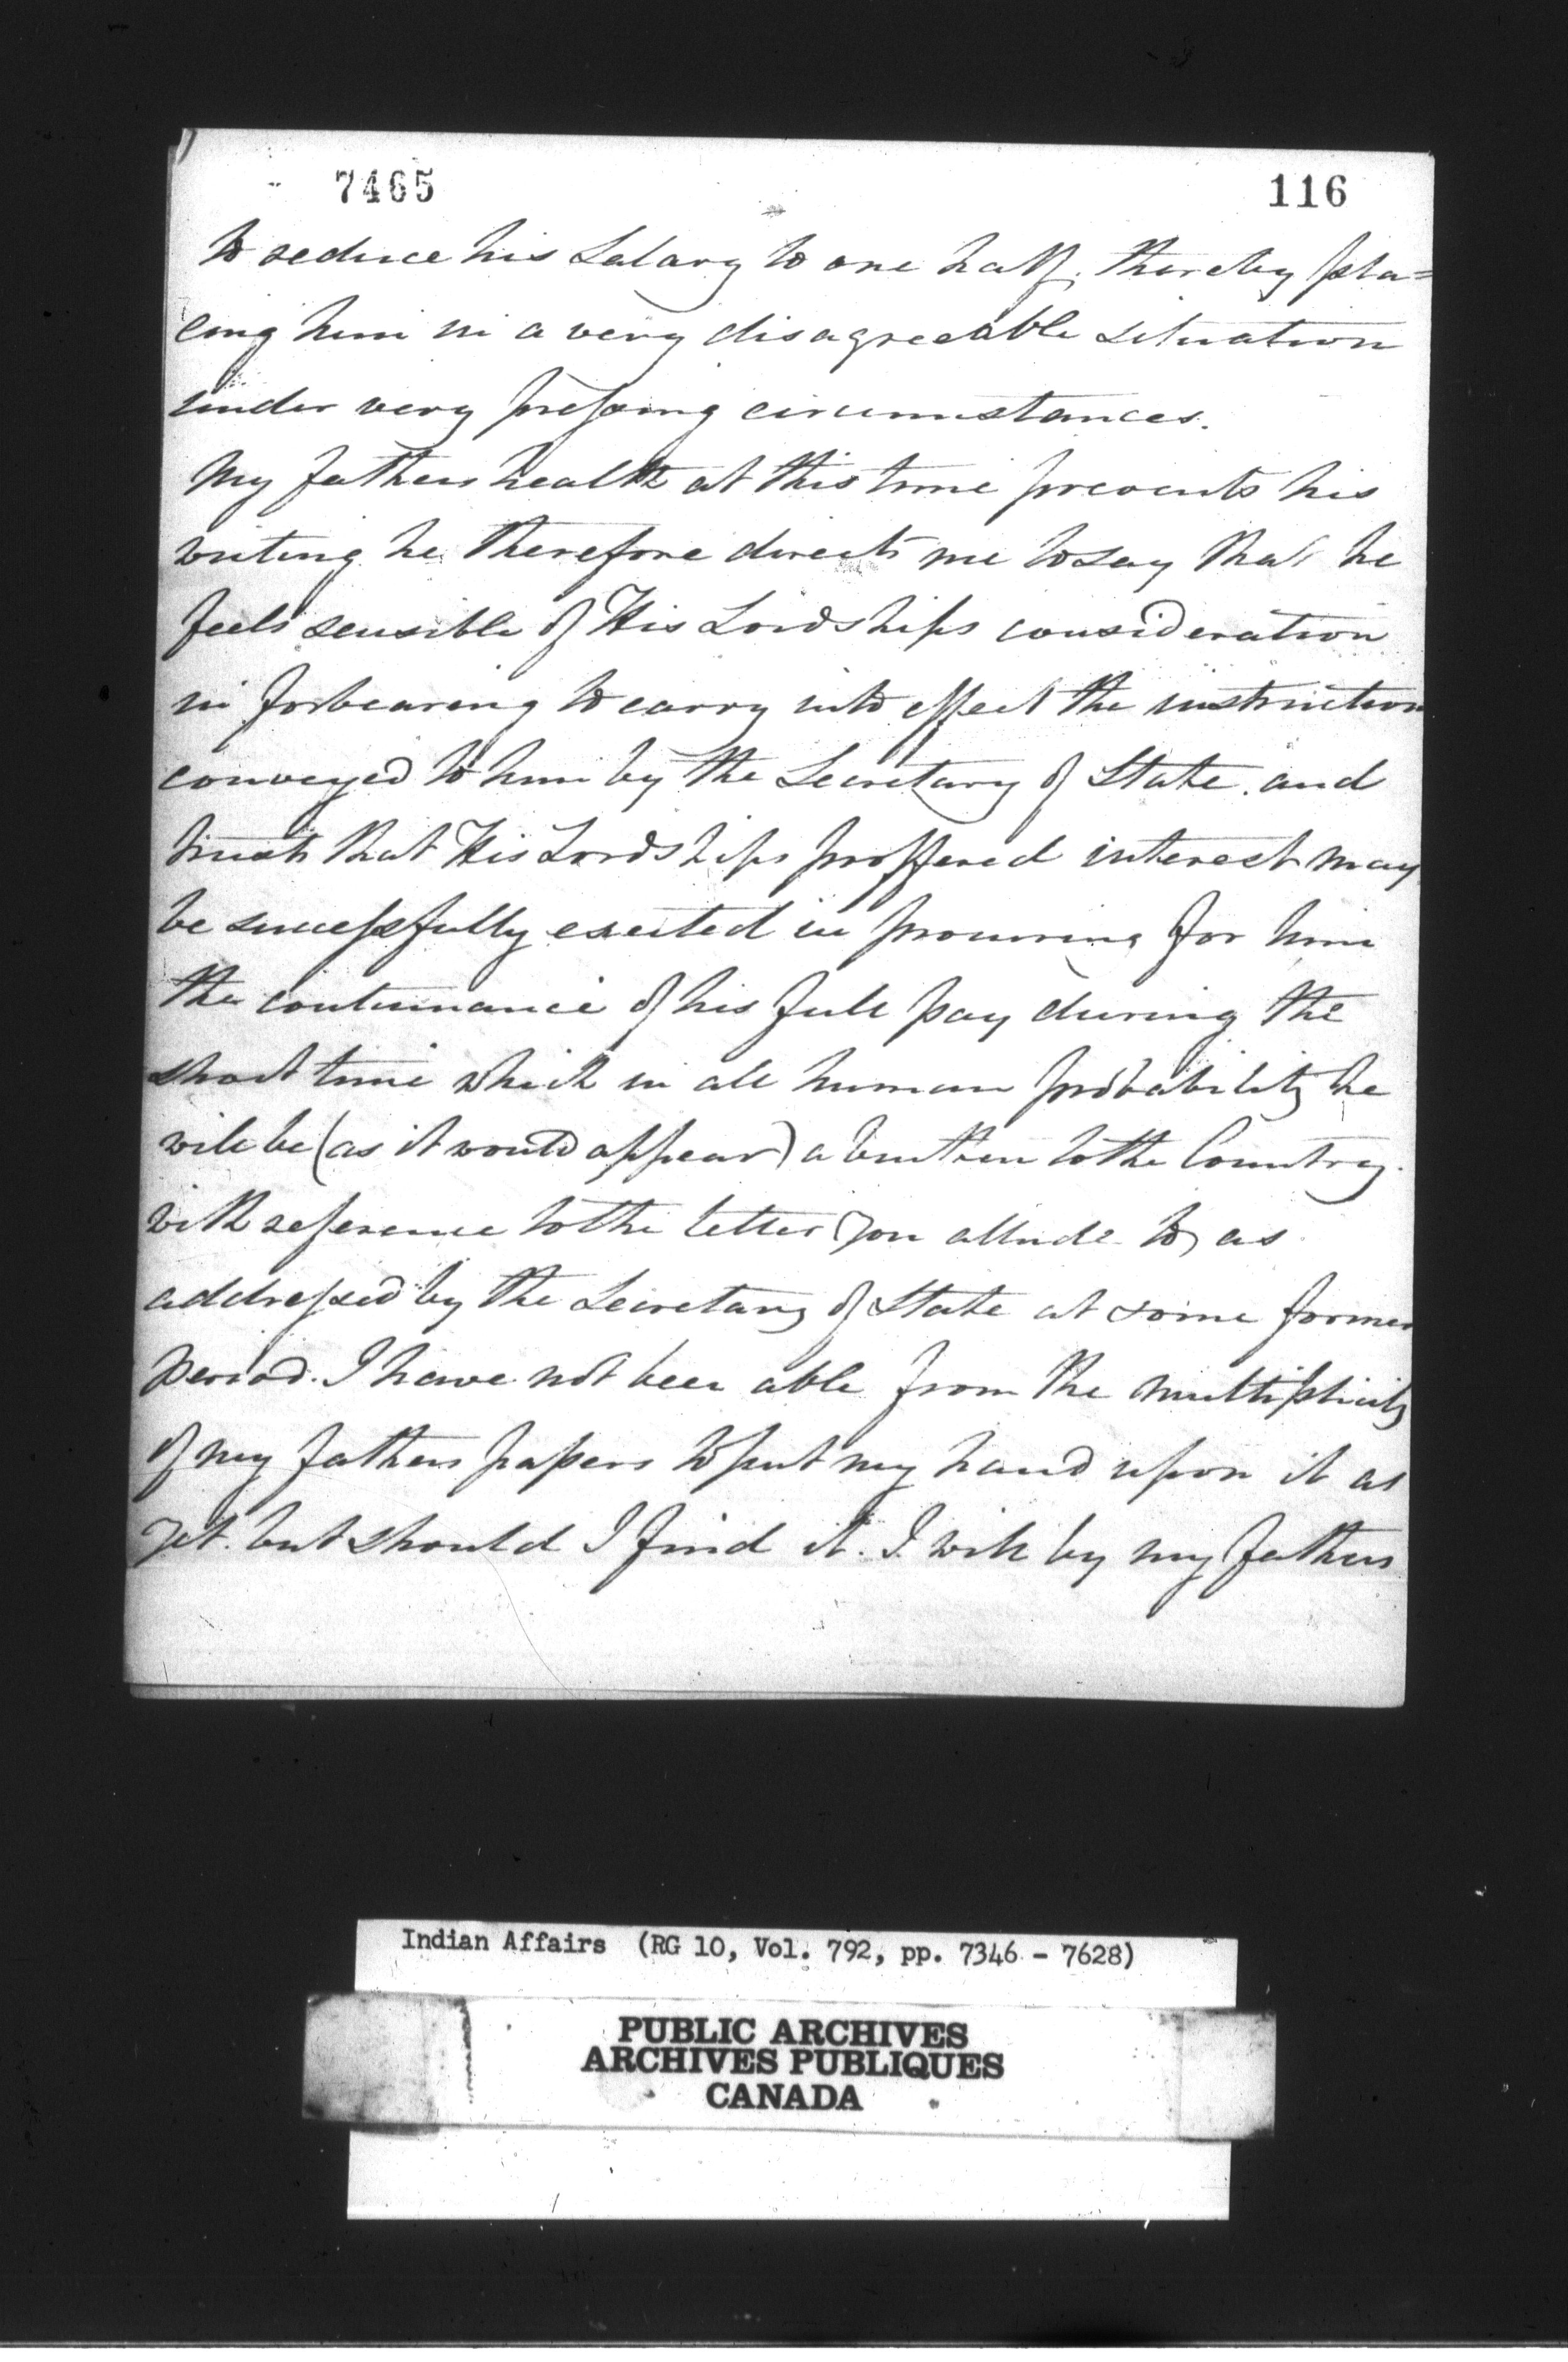 7465 116
to reduce his Salary to one half, thereby pla=
cing him in a very disagreeable situation
under very pressing circumstances.
My fathers health at this time prevents his
writing he therefore directs me to say that he
feels sensible of His Lordships consideration
in forbearing to carry into effect the instruction
conveyed to him by the Secretary of State. and
trusts that His Lordships proffered interest may
be successfully exerted in procuring for him
the continuance of his full pay during the
short time which in all human probability he
will be (as it would appear) a burthen to the Country.
with reference to the letter you allude to as
addressed by the Secretary of State at some former
period. I have not been able from the multiplicity
of my fathers papers to put my hand upon it as
yet. but should I find it. I will by my fathers
Indian Affairs (RG 10, Vol. 792, pp. 7346 - 7628)
PUBLIC ARCHIVES
ARCHIVES PUBLIQUES
CANADA